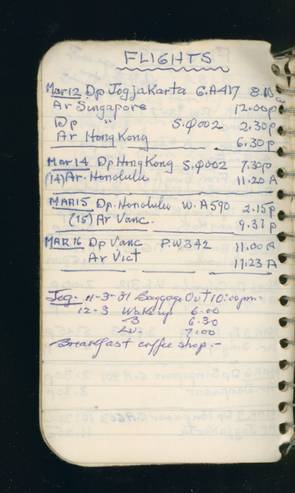 FLIGHTS
Mar 12 Dp Jogjakarta G.A417 8.
Ar Singapore 12.00p
Dp " S.Q002 2.30p
Ar Hong Kong 6.30p
Mar 14 Dp Hong Kong S.Q002 7.30p
(14) Ar. Honolulu 11.20 A
MAR15 Dp. Honolulu W.A590 2.15p
(15) Ar Vanc. 9.37p
MAR16 Dp Vanc P.W342 11.00 A
Ar Vict 11.23 A
Jog. 11-3-81 Baggage Out 10:00pm.
12-3 Wake up 6.00
B 6.30
Lv. 7.00
Breakfast coffee shop.-